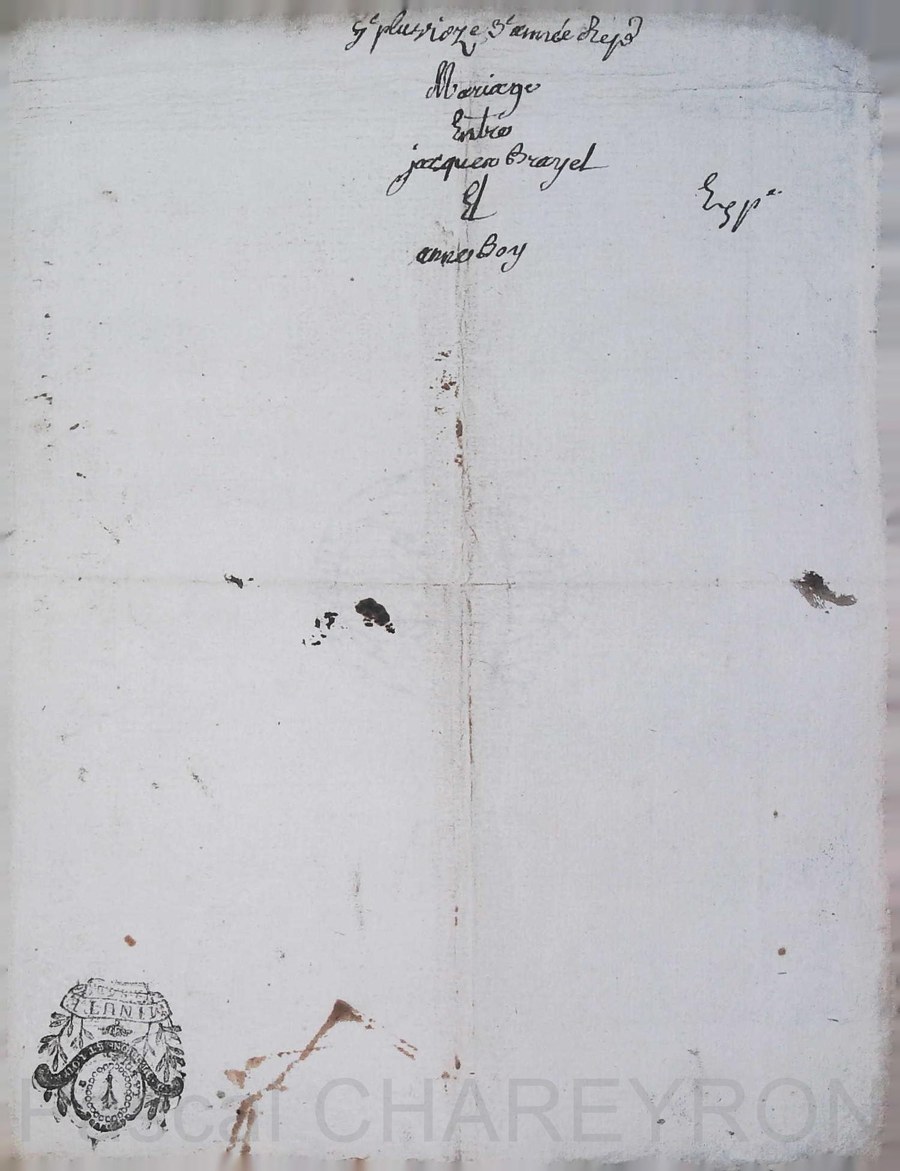 5e pluvioze 3e année Rep
Mariage
Entre
jacques Brayel
Et
anne Boy
Exp
Pascal CHAREYRON